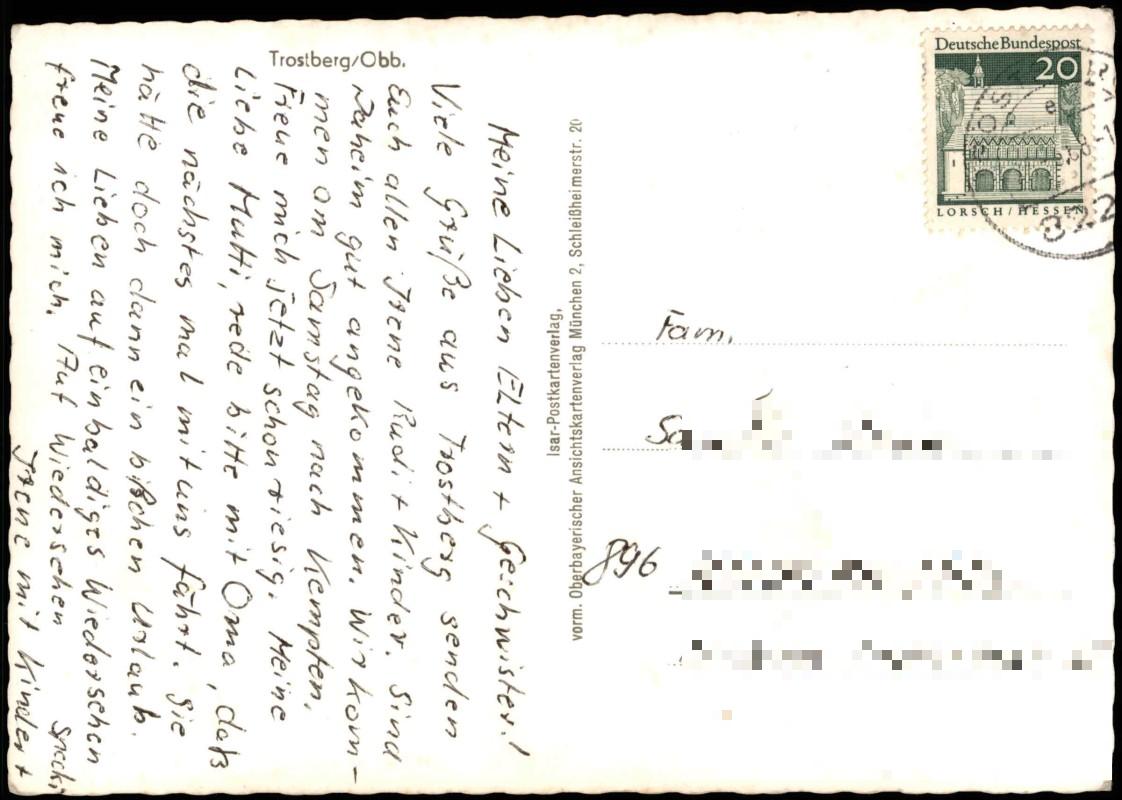 Trostberg/Obb.
Meine Lieben Eltern + Geschwister!
Viele Grüße aus Trostberg senden
Euch allen Irene Rudi + Kinder. Sind
Daheim gut angekommen. Wir kom-
men am Samstag nach Kempten.
Freue mich jetzt schon riesig. Meine
Liebe Mutti, rede bitte mit Oma, daß
die nächstes mal mit uns fährt. Sie
hätte doch dann ein bißchen Urlaub.
Meine Lieben auf ein baldiges Wiedersehen
freue ich mich. Auf Wiedersehen
Irene mit Kinder +
Isar-Postkartenverlag,
vorm. Oberbayerischer Ansichtskartenverlag München 2, Schleißheimerstr. 20
Deutsche Bundespost
20
LORSCH/HESSEN
822
Fam.
896